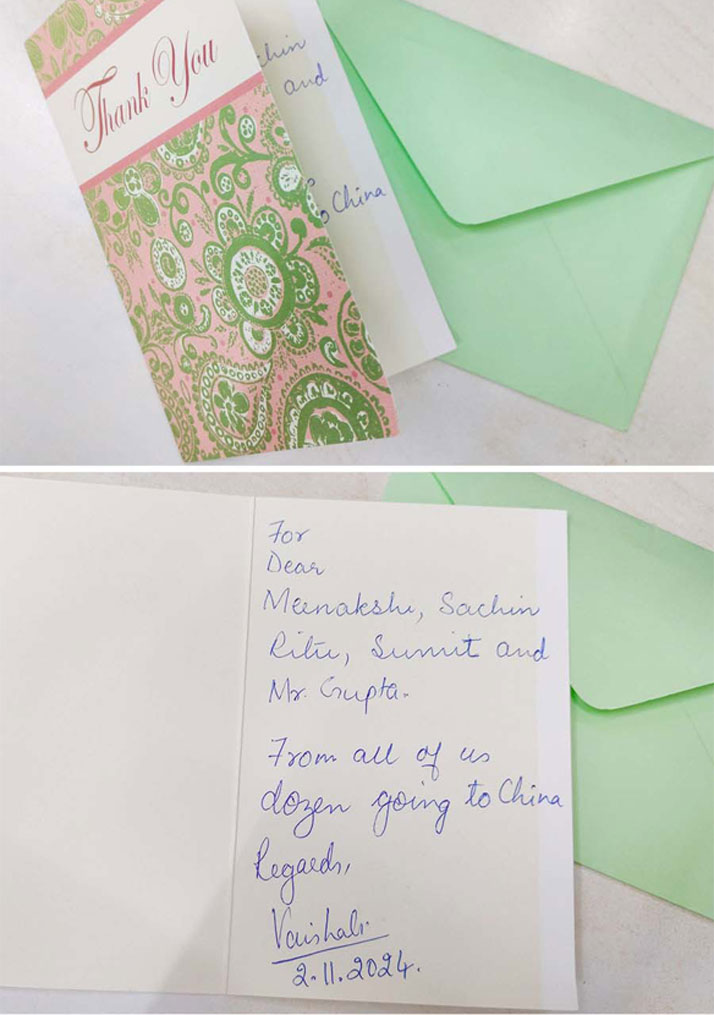 Thank You
chin
and
China
For
Dear
Meenakshi, Sachin
Ritu, Sumit and
Mr. Gupta.
From all of us
dozen going to China
Regards,
Vaishali
2.11.2024.